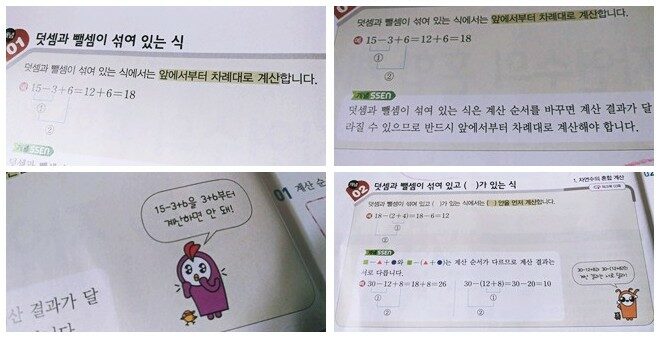 01
덧셈과 뺄셈이 섞여 있는 식
덧셈과 뺄셈이 섞여 있는 식에서는 앞에서부터 차례대로 계산합니다.
예 15-3+6=12+6=18
①
②
개념 SSEN
앞에서부터 차례대로 계산합니다.
예 15-3+6=12+6=18
①
②
개념 SSEN
덧셈과 뺄셈이 섞여 있는 식은 계산 순서를 바꾸면 계산 결과가 달
라질 수 있으므로 반드시 앞에서부터 차례대로 계산해야 합니다.
15-3+6을 3+6부터
계산하면 안 돼!
01 계산 순
산 결과가 달
니다.
1. 자연수의 혼합 계산
02 덧셈과 뺄셈이 섞여 있고 ( )가 있는 식
덧셈과 뺄셈이 섞여 있고 ( )가 있는 식에서는 ( ) 안을 먼저 계산합니다.
예 18-(2+4)=18-6=12
①
②
개념 SSEN
■-▲+●와 ■-(▲+●)는 계산 순서가 다르므로 계산 결과는
서로 다릅니다.
예 30-12+8=18+8=26 30-(12+8)=30-20=10
① ①
② ②